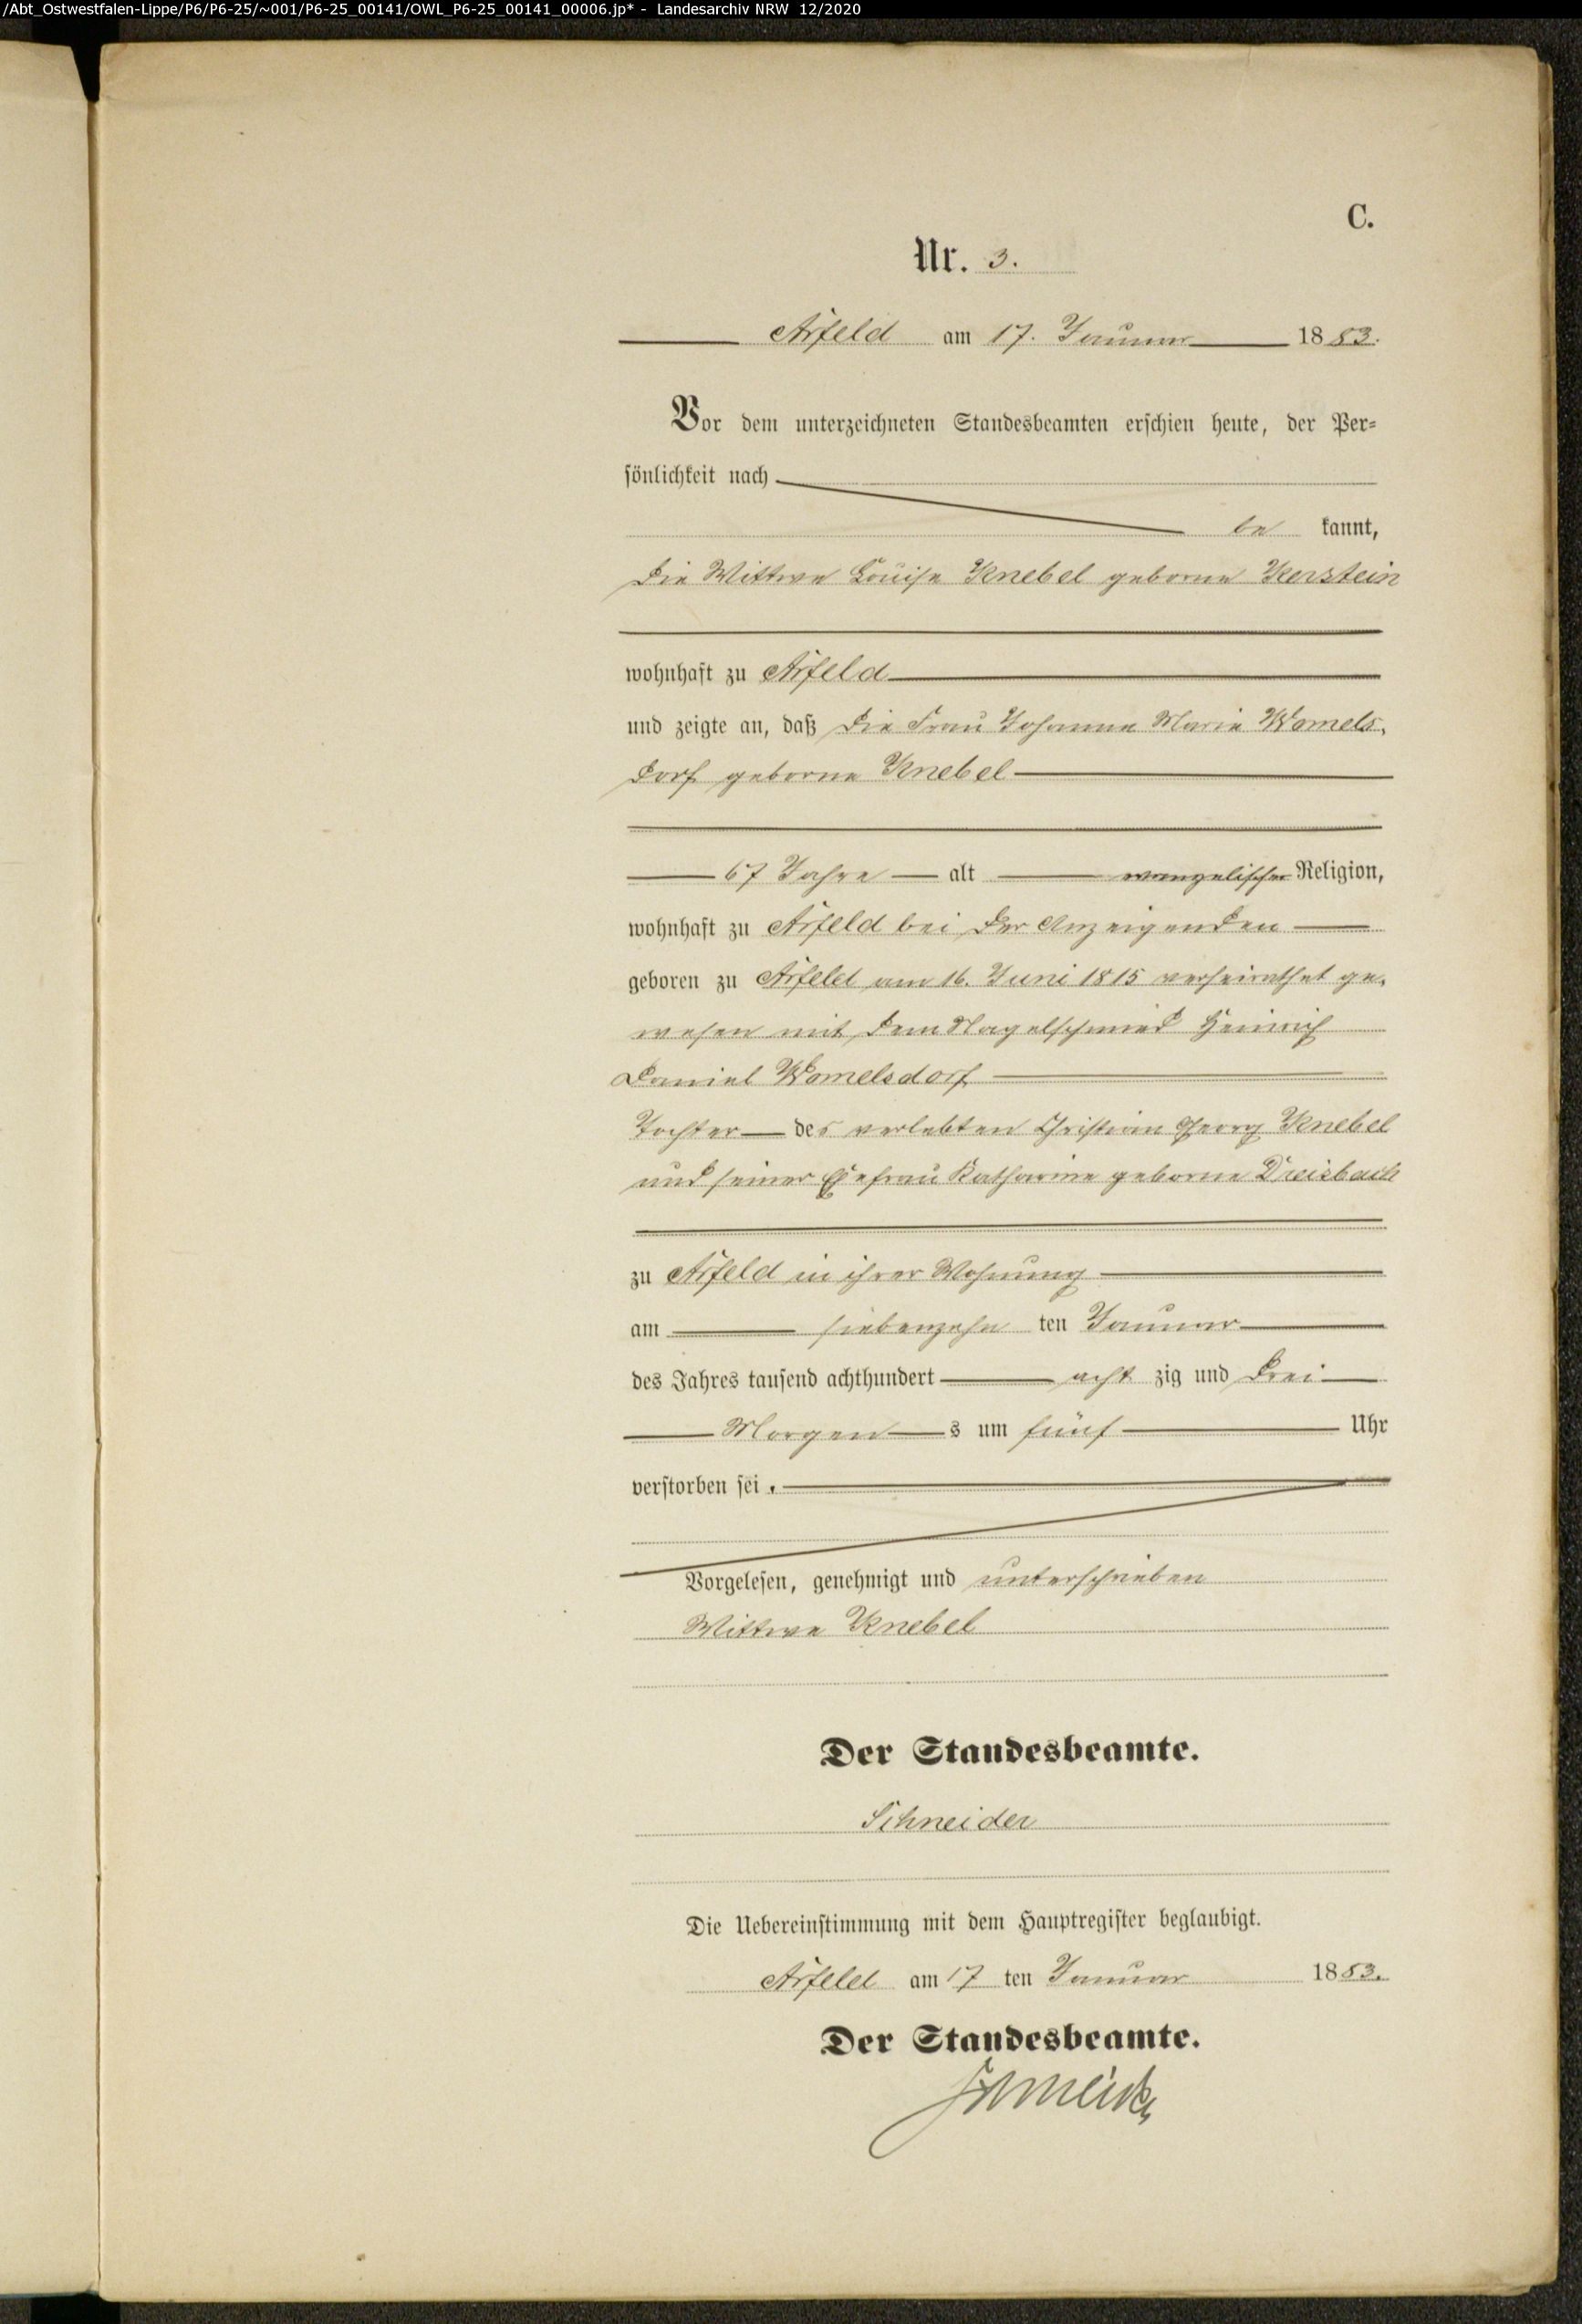 /Abt_Ostwestfalen-Lippe/P6/P6-25/~001/P6-25_00141/OWL_P6-25_00141_00006.jp* - Landesarchiv NRW 12/2020
C.
Nr. 3.
Arfeld am 17. Januar 1883.
Vor dem unterzeichneten Standesbeamten erschien heute, der Per-
sönlichkeit nach
be kannt,
die Wittwe Louise Knebel geborne Kerstein
wohnhaft zu Arfeld
und zeigte an, daß die Frau Johanne Marie Womels-
dorf geborne Knebel
67 Jahre alt evangelischer Religion,
wohnhaft zu Arfeld bei der Anzeigenden
geboren zu Arfeld am 16. Juni 1815 verheirathet ge-
wesen mit dem Nagelschmied Heinrich
Daniel Womelsdorf
Tochter des verlebten Christian Georg Knebel
und seiner Ehefrau Katharine geborne Dreisbach
zu Arfeld in ihrer Wohnung
am siebenzehn ten Januar
des Jahres tausend achthundert acht zig und drei
Morgen s um fünf Uhr
verstorben sei.
Vorgelesen, genehmigt und unterschrieben
Wittwe Knebel
Der Standesbeamte.
Schneider
Die Uebereinstimmung mit dem Hauptregister beglaubigt.
Arfeld am 17 ten Januar 1883.
Der Standesbeamte.
Schneider